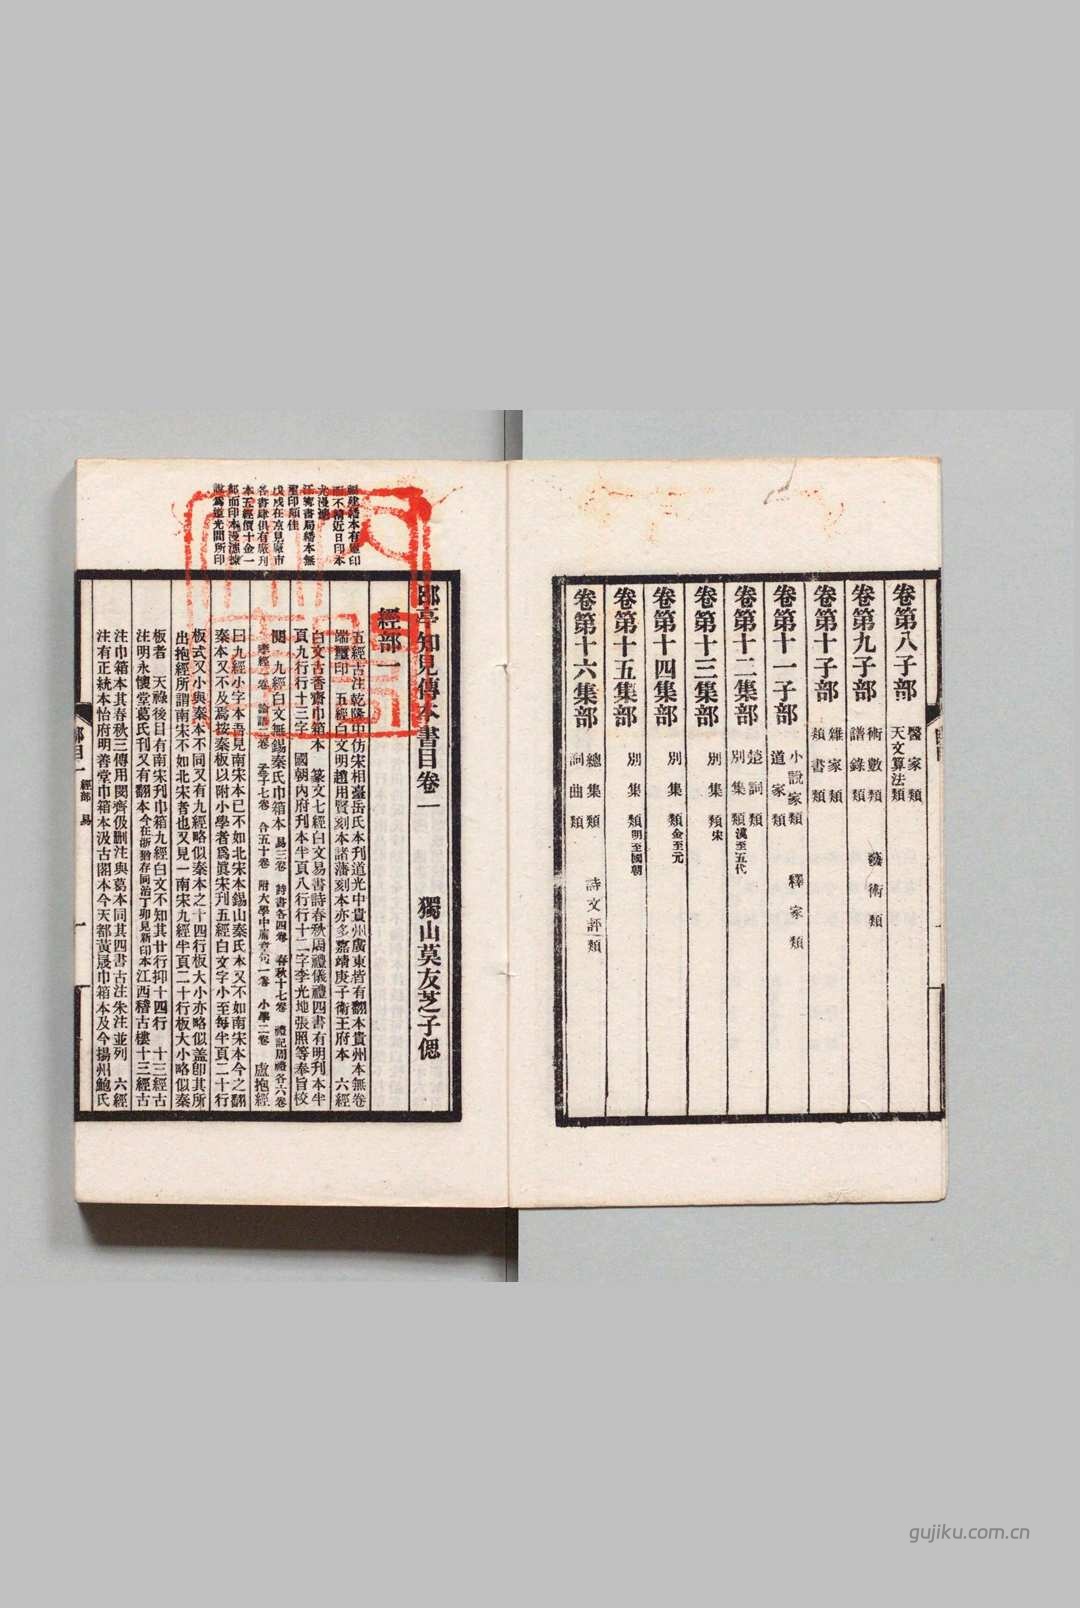 卷第八子部 醫家類
天文算法類
卷第九子部 術數類 藝術類
譜錄類
卷第十子部 雜家類
類書類
卷第十一子部 小說家類 釋家類
道家類
卷第十二集部 楚詞類
別集類漢至五代
卷第十三集部 別集類宋
卷第十四集部 別集類金至元
卷第十五集部 別集類明至國朝
卷第十六集部 總集類 詩文評類
詞曲類
福建繙本有廠印
而不精近日印本
尤漫漶
江寧書局繙本無
聖印頗佳
戊戌在京見廠市
各書肆俱有廠刊
本五經價十金一
部而印本漫漶據
說爲道光間所印
郘亭知見傳本書目卷一 獨山莫友芝子偲
經部一
五經古注乾隆中仿宋相臺岳氏本刊道光中貴州廣東皆有翻本貴州本無卷
端璽印 五經白文明趙用賢刻本諸藩刻本亦多嘉靖庚子衛王府本 六經
白文古香齋巾箱本 篆文七經白文易書詩春秋周禮儀禮四書有明刊本半
頁九行行十三字 國朝內府刊本半頁八行行十二字李光地張照等奉旨校
閱 九經白文無錫秦氏巾箱本 易三卷 詩書各四卷 春秋十七卷 禮記周禮各六卷
孝經一卷 論語二卷 孟子七卷 合五十卷 附大學中庸章句一卷 小學二卷 盧抱經
曰九經小字本吾見南宋本已不如北宋本錫山秦氏本又不如南宋本今之翻
秦本又不及焉按秦板以附小學者爲眞宋刊五經白文字小至每半頁二十行
板式又小與秦本不同又有九經略似秦本之十四行板大小亦略似盖卽其所
出抱經所謂南宋不如北宋者也又見一南宋九經半頁二十行板大小略似秦
板者 天祿後目有南宋刋巾箱九經白文不知其廿行抑十四行 十三經古
注明永懷堂葛氏刊又有翻本今在浙猶存同治丁卯見新印本江西稽古樓十三經古
注巾箱本其春秋三傳用閔齊伋删注與葛本同其四書古注朱注並列 六經
注有正統本怡府明善堂巾箱本汲古閣本今天都黃晟巾箱本及今揚州鮑氏
郘目一 經部 易 一
gujiku.com.cn